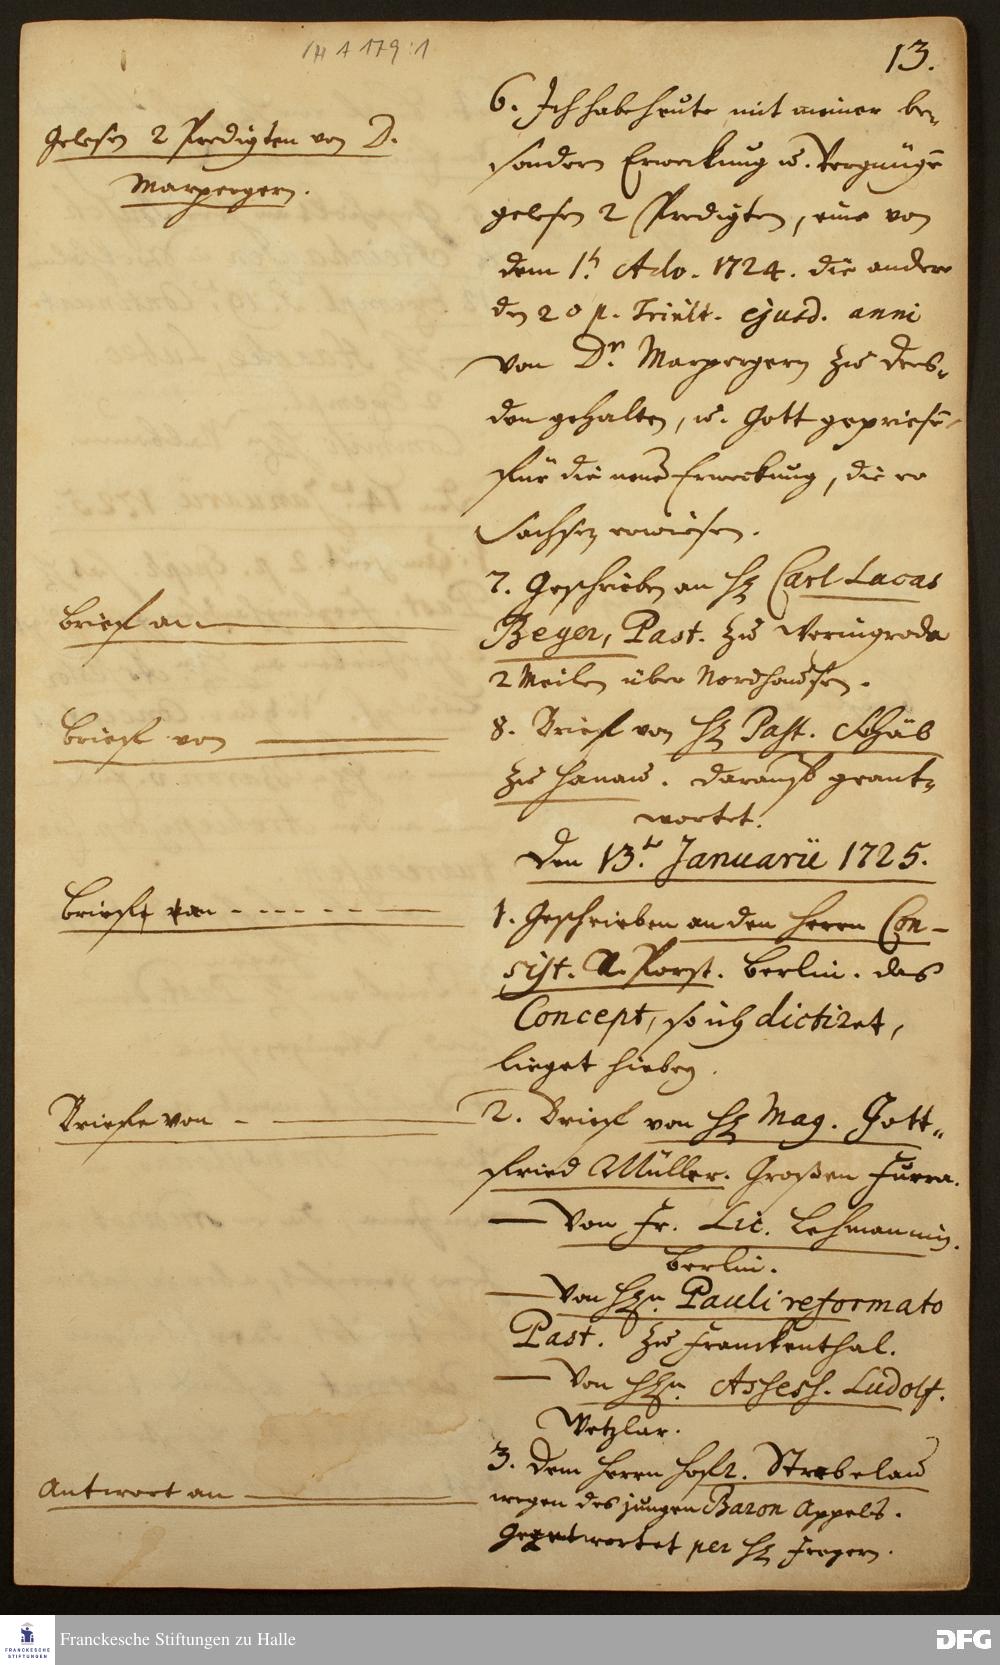 H A 179:1
13.
Gelesen 2 Predigten von D.
Marpergern.
6. Ich habe heute mit meiner be-
sondern Erweckung u. Vergnügē
gelesen 2 Predigten, eine von
dem 1. Adv. 1724. die andere
den 20 p. Trinit. ejusd. anni
von Dr. Marpergern zu Dres-
den gehalten, u. Gott gepriesē
für die neue Erweckung, die er
Sachsen erwiesen.
Brief an
7. Geschrieben an H. Carl Lucas
Beyer, Past. zu Weringroda
2 Meilen über Nordhausen.
Brief von
8. Brief von H. Past. Schäb
zu Hanau. darauf geant-
wortet.
Den 13.t Januarii 1725.
Briefe
1. Geschrieben an den Herrn Con-
sist. R. Porst. Berlin. das
Concept, so ich dictiret,
lieget hiebey.
Briefe von
2. Brief von H. Mag. Gott-
fried Müller. Großen Furra.
Von Fr. Lic. Lehmannin.
Berlin.
Von Hrn. Pauli reformato
Past. zu Franckenthal.
Von Hrn. Assess. Ludolf.
Wetzlar.
Antwort an
3. Dem Herrn Hofr. Strebelau
wegen des jungen Baron Appels.
Geantwortet per H. Fregern.
Franckesche Stiftungen zu Halle
FRANCKESCHE
STIFTUNGEN
DFG